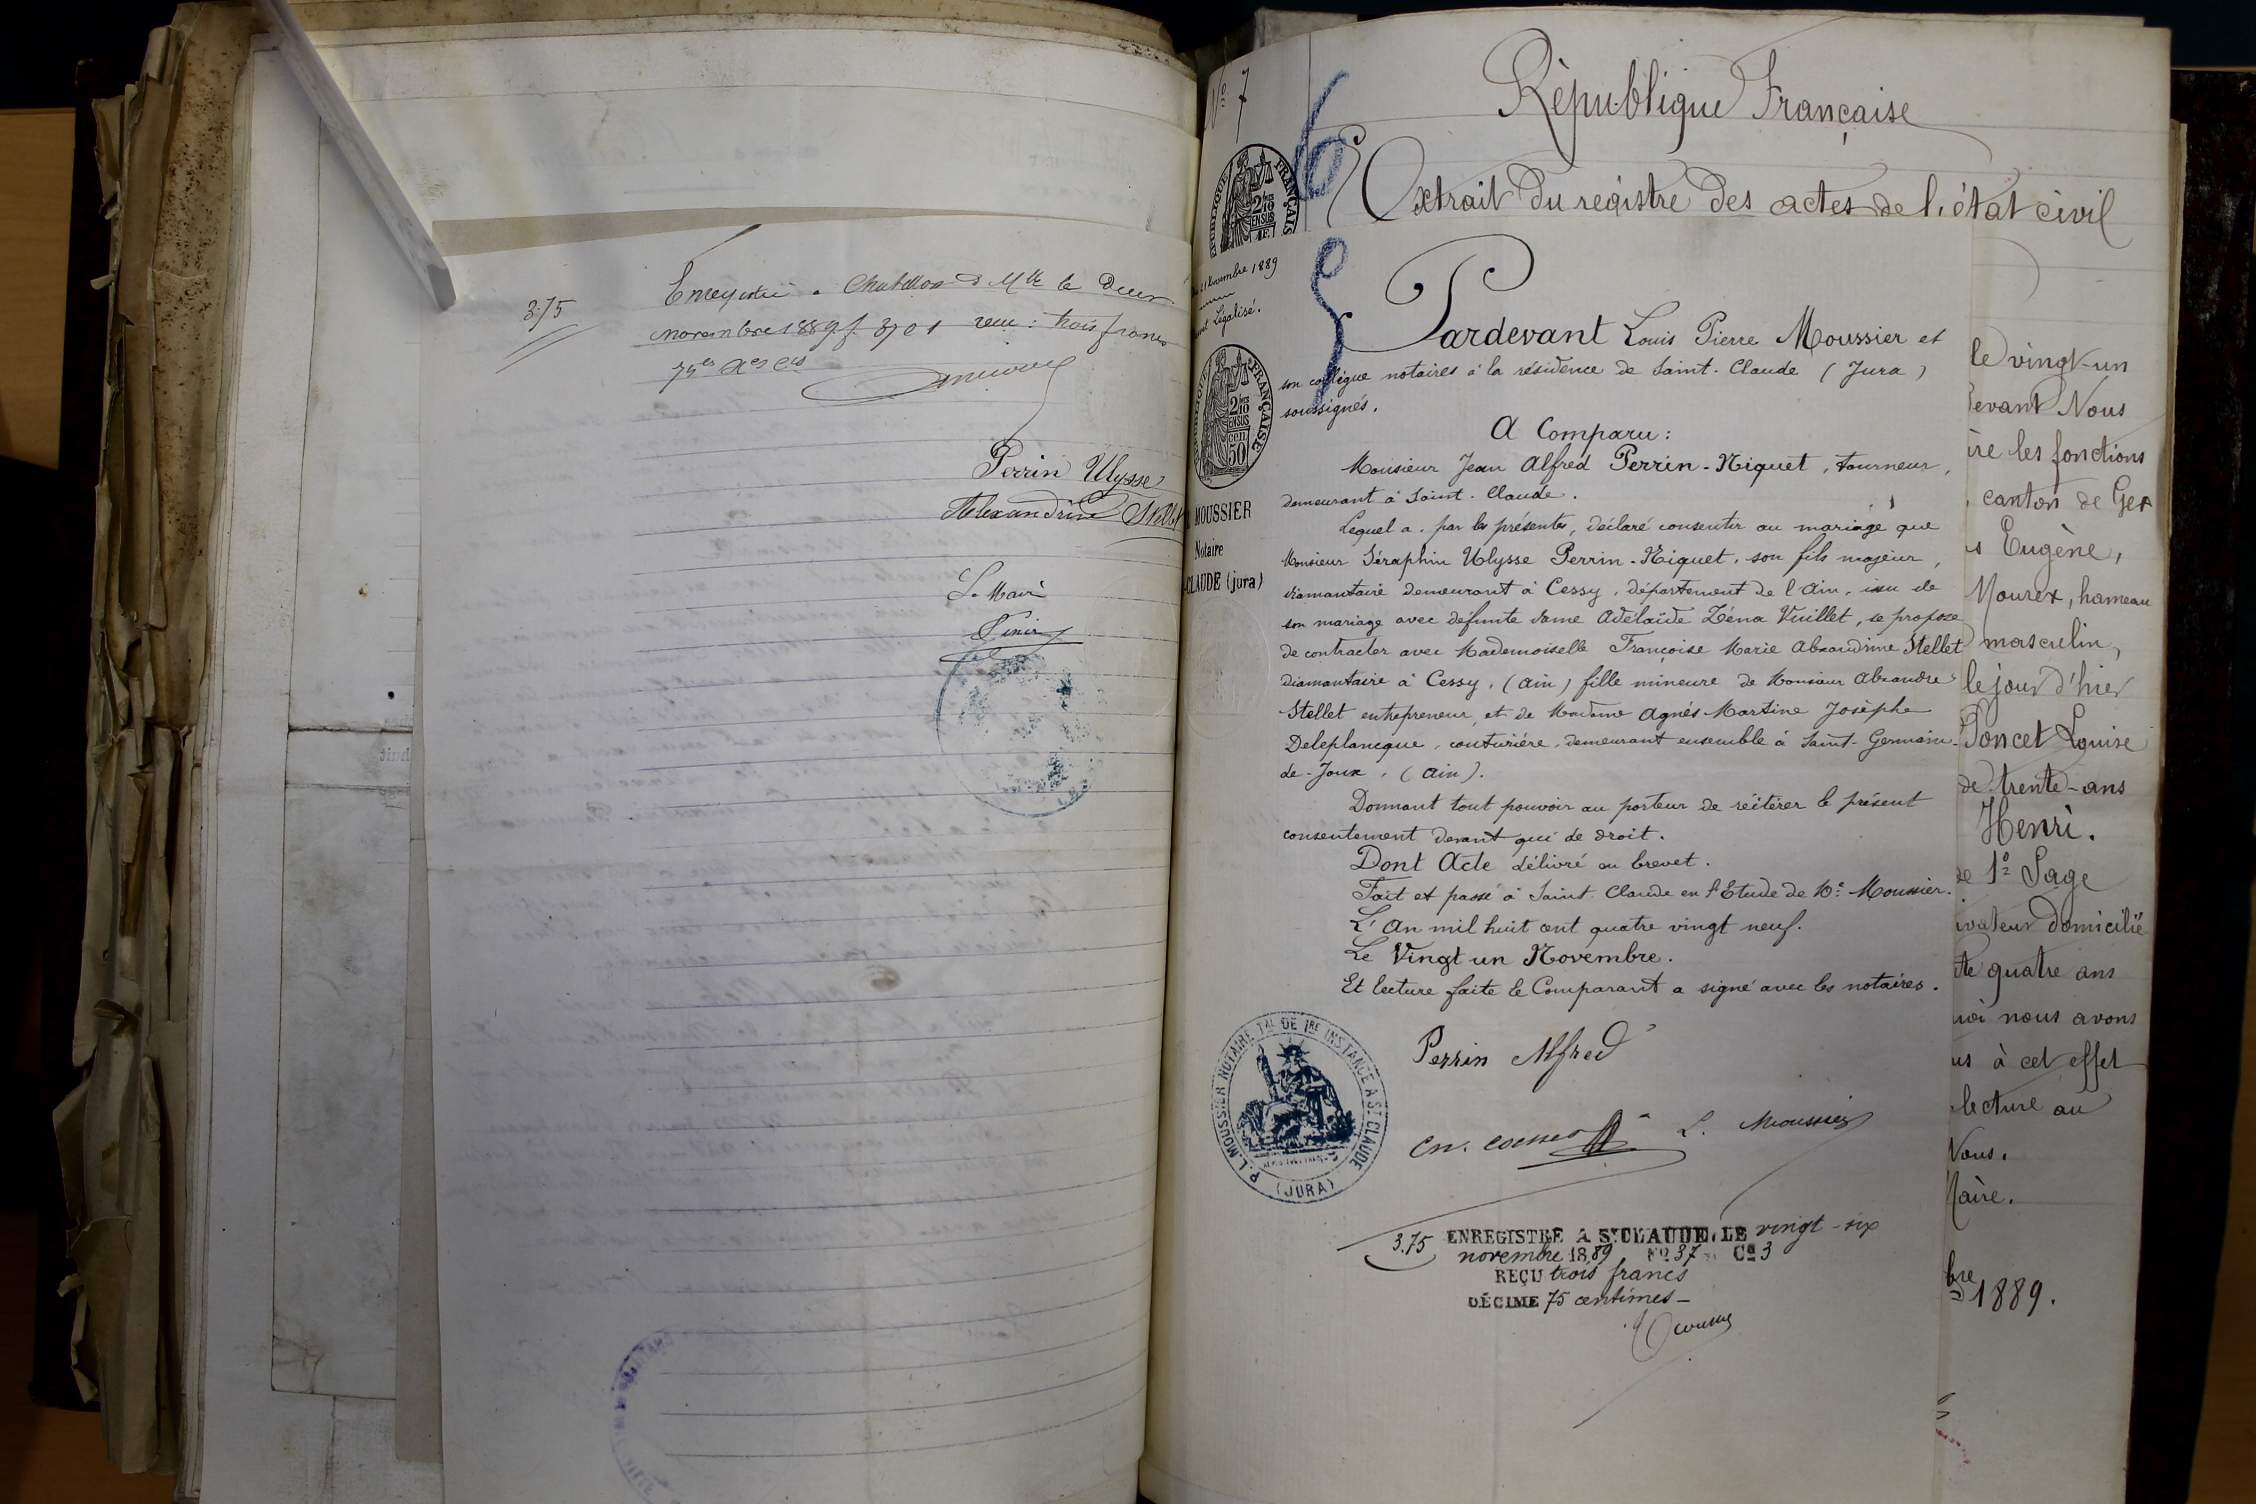 3.75
Enregistré à Chatillon de Mlle le deux
novembre 1889 f. 37 01 recu : trois francs
Perrin Ulysse
Alexandrine Stellet
Le Maire
No 7
République Française
Extrait du registre des actes de l'état civil
RÉPUBLIQUE FRANÇAISE
2/10 EN SUS
21 Novembre 1889
Légalisé.
RÉPUBLIQUE FRANÇAISE
2/10 EN SUS
50 cen
MOUSSIER
Notaire
CLAUDE (jura)
Pardevant Louis Pierre Moussier et
son collègue notaires à la résidence de Saint-Claude (Jura)
soussignés.
A Comparu :
Monsieur Jean Alfred Perrin-Niquet, tourneur,
demeurant à Saint-Claude.
Lequel a, par les présentes, déclaré consentir au mariage que
Monsieur Séraphin Ulysse Perrin-Niquet, son fils majeur,
diamantaire demeurant à Cessy, département de l'Ain, issu de
son mariage avec défunte dame Adélaïde Zéna Vuillet, se propose
de contracter avec Mademoiselle Françoise Marie Alexandrine Stellet
diamantaire à Cessy, (Ain) fille mineure de Monsieur Alexandre
Stellet entrepreneur, et de Madame Agnés Martine Josèphe
Deleplancque, couturière, demeurant ensemble à Saint-Germain-
de-Joux, (Ain).
Donnant tout pouvoir au porteur de réitérer le présent
consentement devant qui de droit.
Dont Acte délivré en brevet.
Fait et passé à Saint Claude en l'Etude de Me Moussier.
L'An mil huit cent quatre vingt neuf.
Le Vingt un Novembre.
Et lecture faite le Comparant a signé avec les notaires.
Perrin Alfred
L. Moussier
P. L. MOUSSIER NOTAIRE Tal DE 1RE INSTANCE A ST CLAUDE (JURA)
3.75 ENREGISTRÉ A St CLAUDE, LE vingt-six
novembre 1889 Fo 37 Ce 3
REÇU trois francs
DÉCIME 75 centimes
le vingt-un
devant Nous
ire les fonctions
canton de Gex
s Eugène,
Mourex, hameau
masculin,
le jour d'hier
Poncet Louise
de trente-ans
Henri.
de 1° Sage
ivateur domicilié
te quatre ans
uoi nous avons
us à cet effet
lecture au
Nous.
Maire.
bre 1889.